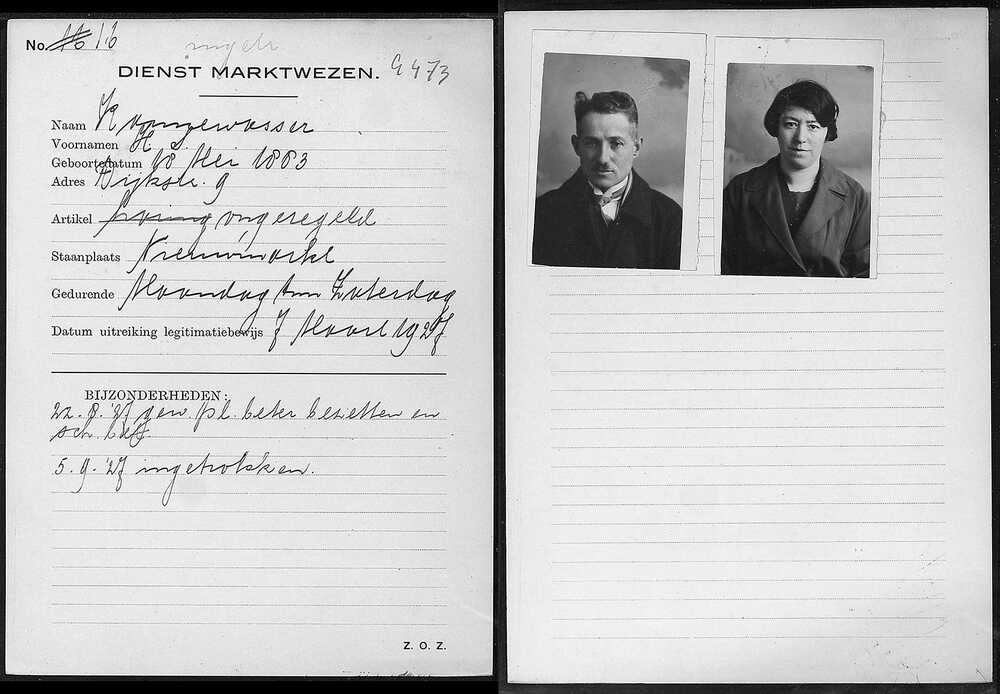 No. 16 16
DIENST MARKTWEZEN. G 473
Naam Kongewasser
Voornamen H. S.
Geboortedatum 18 Mei 1883
Adres Dijkstr. 9
Artikel ongeregeld
Staanplaats Nieuwmarkt
Gedurende Maandag t/m Zaterdag
Datum uitreiking legitimatiebewijs 7 Maart 1927
BIJZONDERHEDEN:
22.8.'27 gew. pl. beter bezetten en
sch. bet.
5.9.'27 ingetrokken.
Z. O. Z.